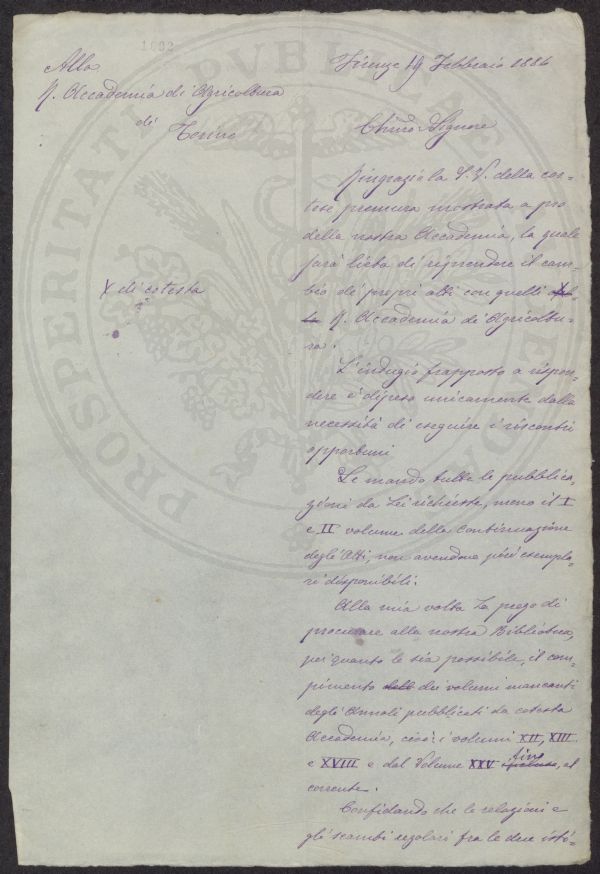 1692
Alla
R. Accademia di Agricoltura
di Torino
Firenze 19 Febbraio 1886
Chiar̃o Signore
Ringrazio la S. V. della cor=
tese premura mostrata a pro
della nostra Accademia, la quale
sarà lieta di riprendere il cam=
bio di propri atti con quelli del X
la R. Accademia di Agricoltu=
ra.
X di cotesta
L'indugio frapposto a rispon=
dere è dipeso unicamente dalla
necessità di eseguire i riscontri
opportuni
Le mando tutte le pubblica=
zioni da Lei richieste, meno il I
e II volume della Continuazione
degli Atti, non avendone più esempla=
ri disponibili.
Alla mia volta La prego di
procurare alla nostra Biblioteca,
per quanto le sia possibile, il com=
pimento dell dei volumi mancanti
degli Annali pubblicati da cotesta
Accademia, cioè i volumi XII, XIII
e XVIII e dal Volume XXV fino al
corrente.
Confidando che le relazioni e
gli scambi regolari fra le due isti=
PROSPERITATI PUBLICAE AUGENDAE